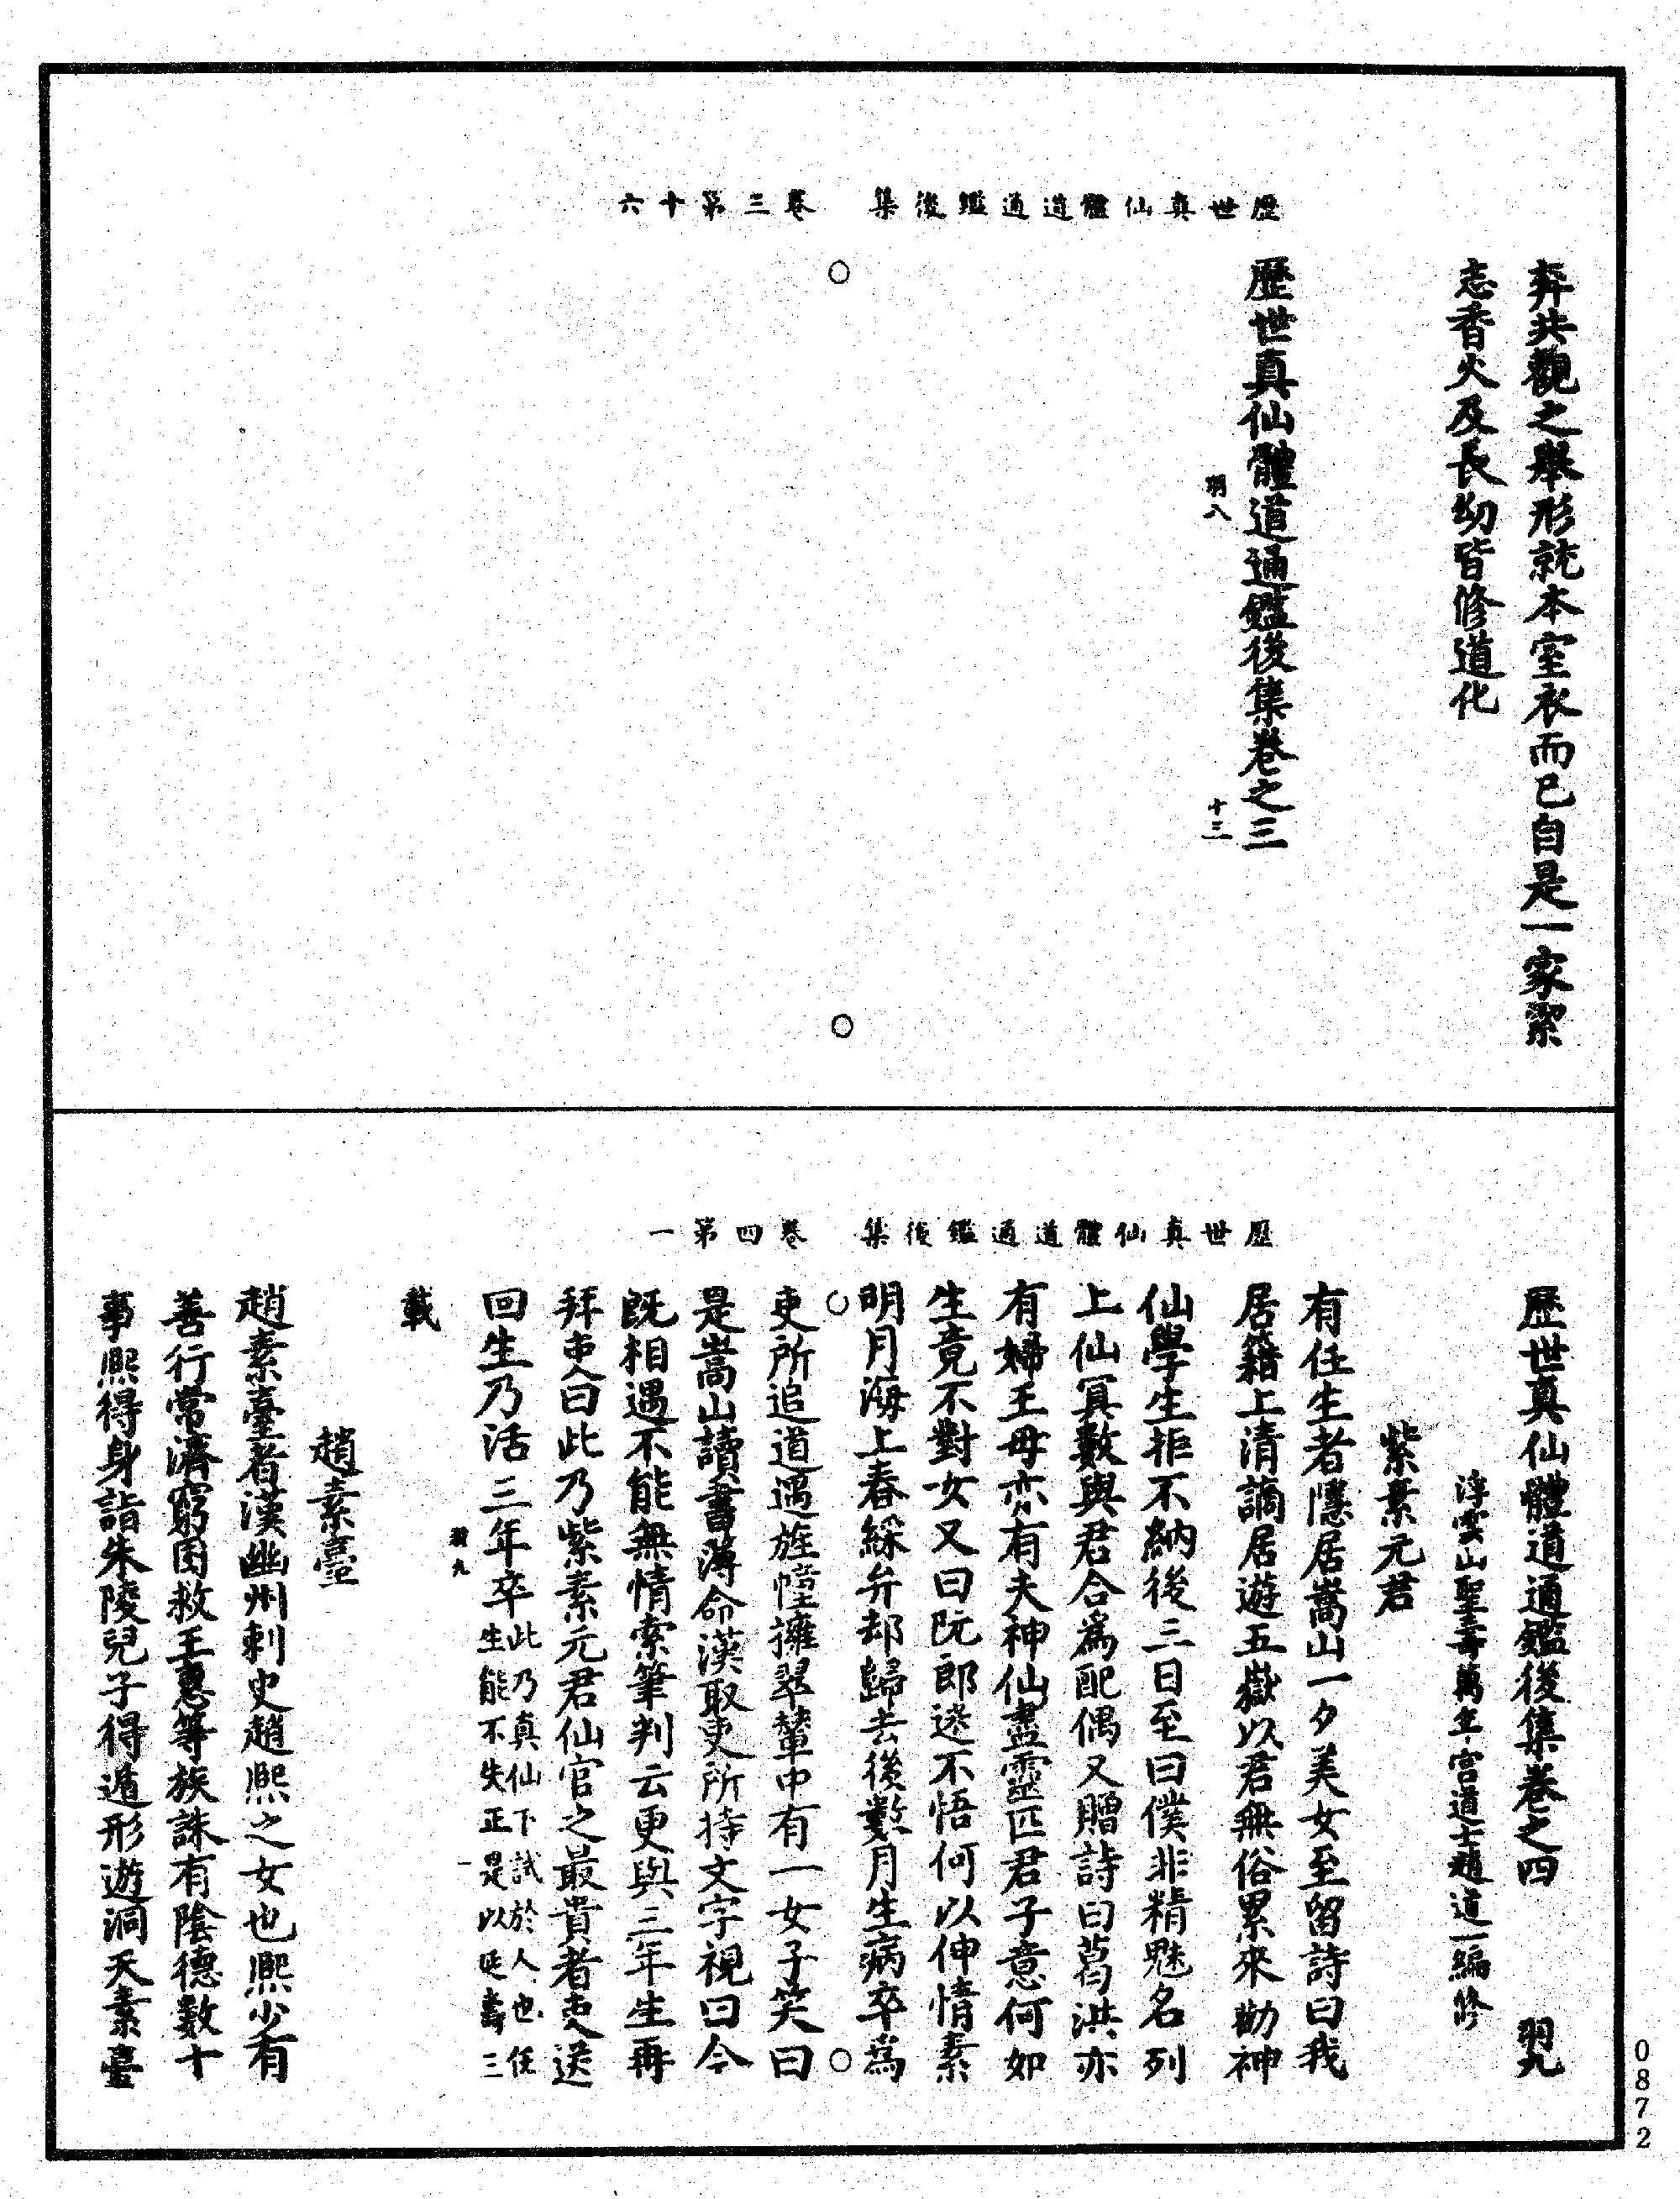 歷世真仙體道通鑑後集　卷三第十六
弃共觀之舉形就本室衣而已自是一家潔
志香火及長幼皆修道化
歷世真仙體道通鑑後集卷之三
羽八
十三
歷世真仙體道通鑑後集　卷四第一
歷世真仙體道通鑑後集卷之四　羽九
浮雲山聖壽萬年宮道士趙道一編修
紫素元君
有任生者隱居嵩山一夕美女至留詩曰我
居籍上清謫居遊五嶽以君無俗累來勸神
仙學生拒不納後三日至曰僕非精魅名列
上仙冥數與君合為配偶又贈詩曰葛洪亦
有婦王母亦有夫神仙盡靈匹君子意何如
生竟不對女又曰阮郎迷不悟何以伸情素
明月海上春綵舟却歸去後數月生病卒為
吏所追道遇旌幢擁翠輦中有一女子笑曰
是嵩山讀書薄命漢取吏所持文字視曰今
既相遇不能無情索筆判云更與三年生再
拜吏曰此乃紫素元君仙官之最貴者吏送
回生乃活三年卒此乃真仙下試於人也任
生能不失正是以延壽三
羽九
一
載
趙素臺
趙素臺者漢幽州刺史趙熙之女也熙少有
善行常濟窮困救王惠等族誅有陰德數十
事熙得身詣朱陵兒子得遁形遊洞天素臺
0872